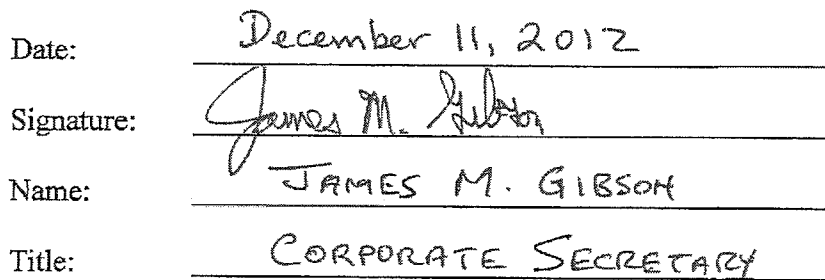 Date: December 11, 2012
Signature: James M. Gibson
Name: JAMES M. GIBSON
Title: CORPORATE SECRETARY